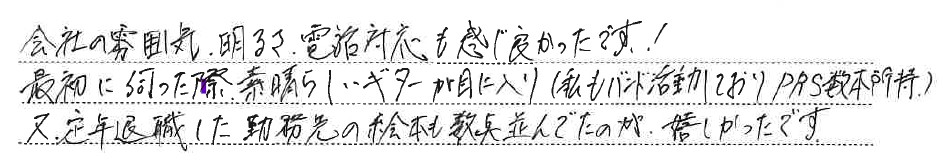 会社の雰囲気、明るさ、電話対応も感じ良かったです！
最初に伺った際、素晴らしいギターが目に入り（私もバンド活動しておりPRS数本所持。）
又、定年退職した勤務先の絵本も数点並んでたのが、嬉しかったです。